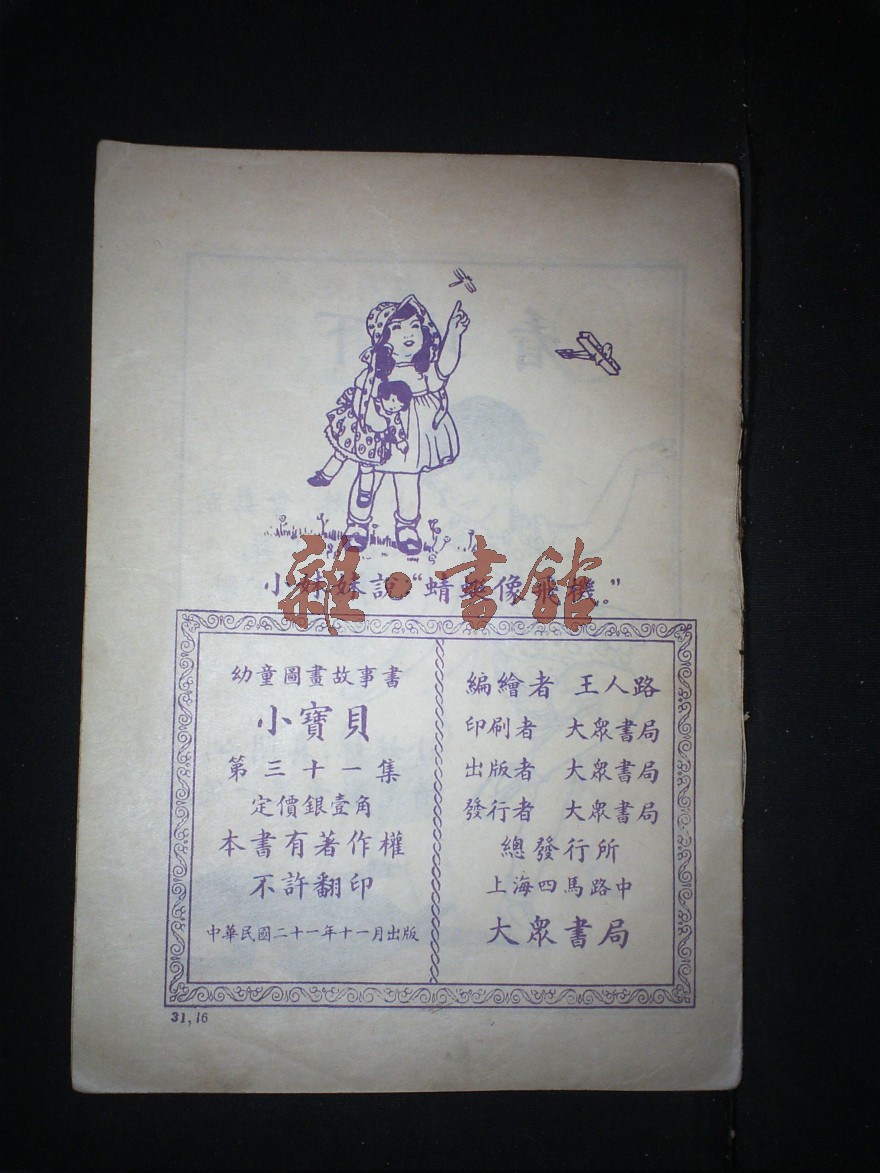 小妹妹說：“蜻蜓像飛機。”
雜·書館
幼童圖畫故事書
小寶貝
第三十一集
定價銀壹角
本書有著作權
不許翻印
中華民國二十一年十一月出版
編繪者 王人路
印刷者 大眾書局
出版者 大眾書局
發行者 大眾書局
總發行所
上海四馬路中
大眾書局
31,16